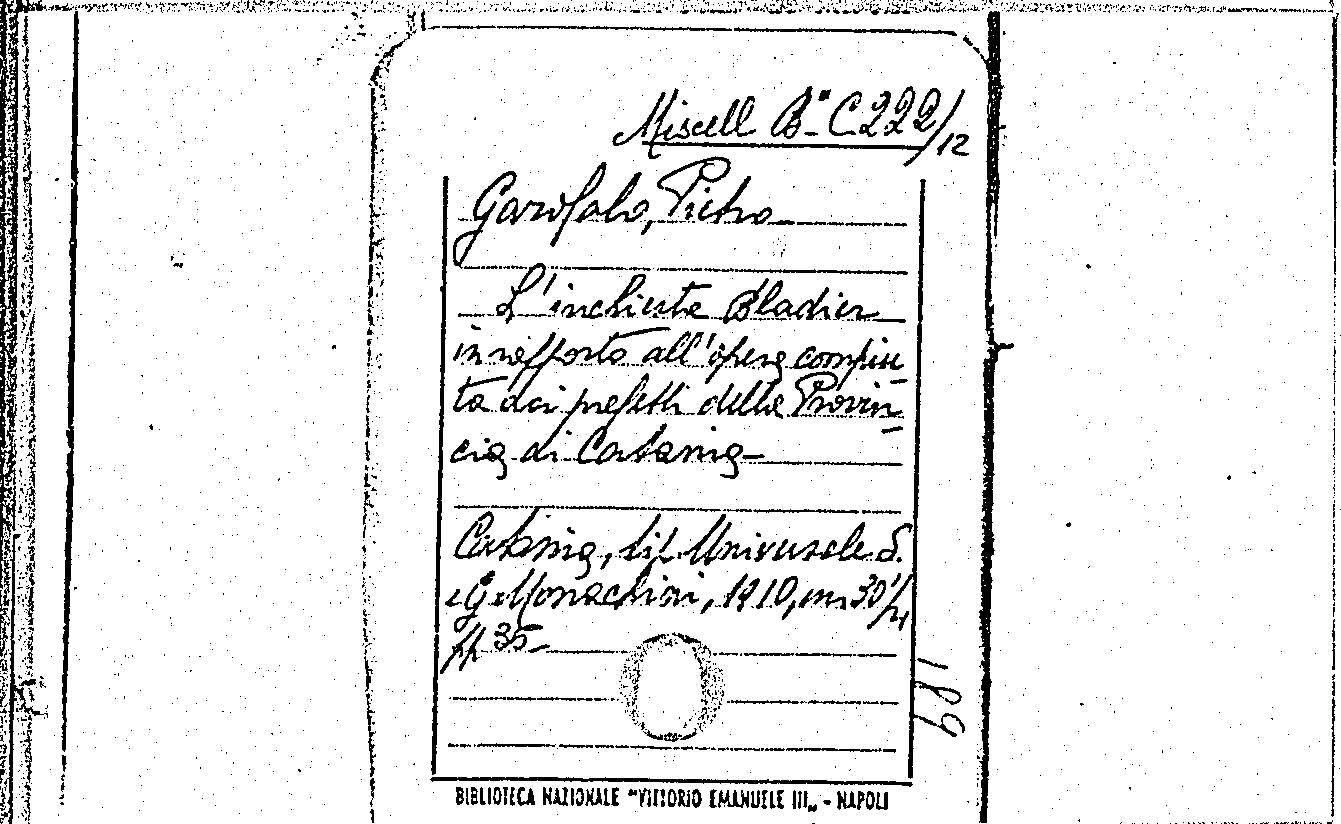 Miscell Bª C222/12
Garofalo, Pietro
L'inchiesta Bladier
in rapporto all'opera compiu
ta dai prefetti della Provin
cia di Catania
Catania, tip. Universale S.
e G. Monachini, 1910, in 30/4
pp 35
189
BIBLIOTECA NAZIONALE "VITTORIO EMANUELE III„ - NAPOLI